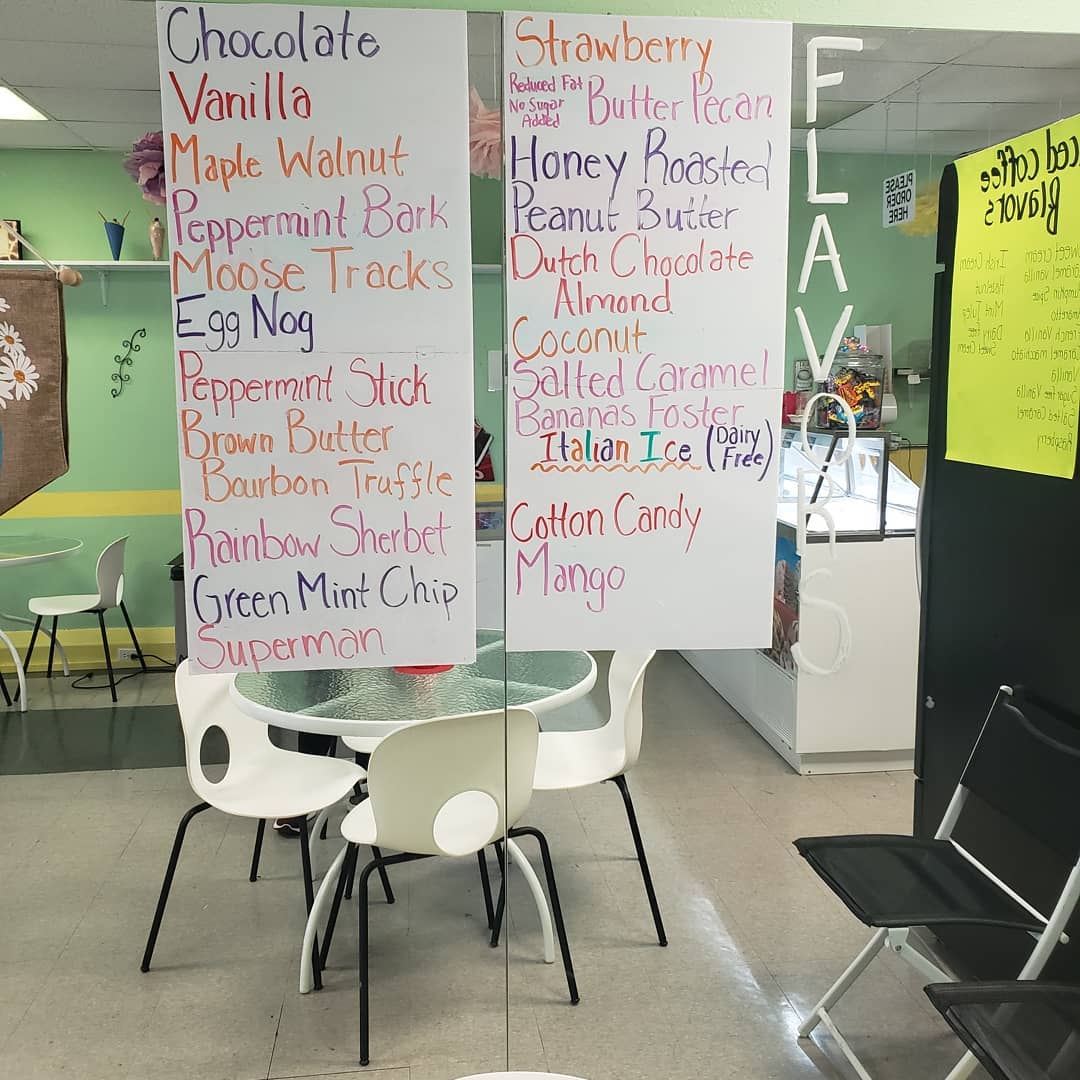 Chocolate
Vanilla
Maple Walnut
Peppermint Bark
Moose Tracks
Egg Nog
Peppermint Stick
Brown Butter
Bourbon Truffle
Rainbow Sherbet
Green Mint Chip
Superman
Strawberry
Reduced Fat
No Sugar
Added
Butter Pecan
Honey Roasted
Peanut Butter
Dutch Chocolate
Almond
Coconut
Salted Caramel
Bananas Foster
Italian Ice (Dairy Free)
Cotton Candy
Mango
FLAVORS
PLEASE
ORDER
HERE
ced coffee
flavors
Sweet Cream
Caramel Vanilla
Pumpkin Spice
Amaretto
French Vanilla
Caramel macchiato
Sugar free Vanilla
Salted Caramel
Raspberry
Irish Cream
Hazelnut
Mint Julep
Dairy free
Sweet Cream